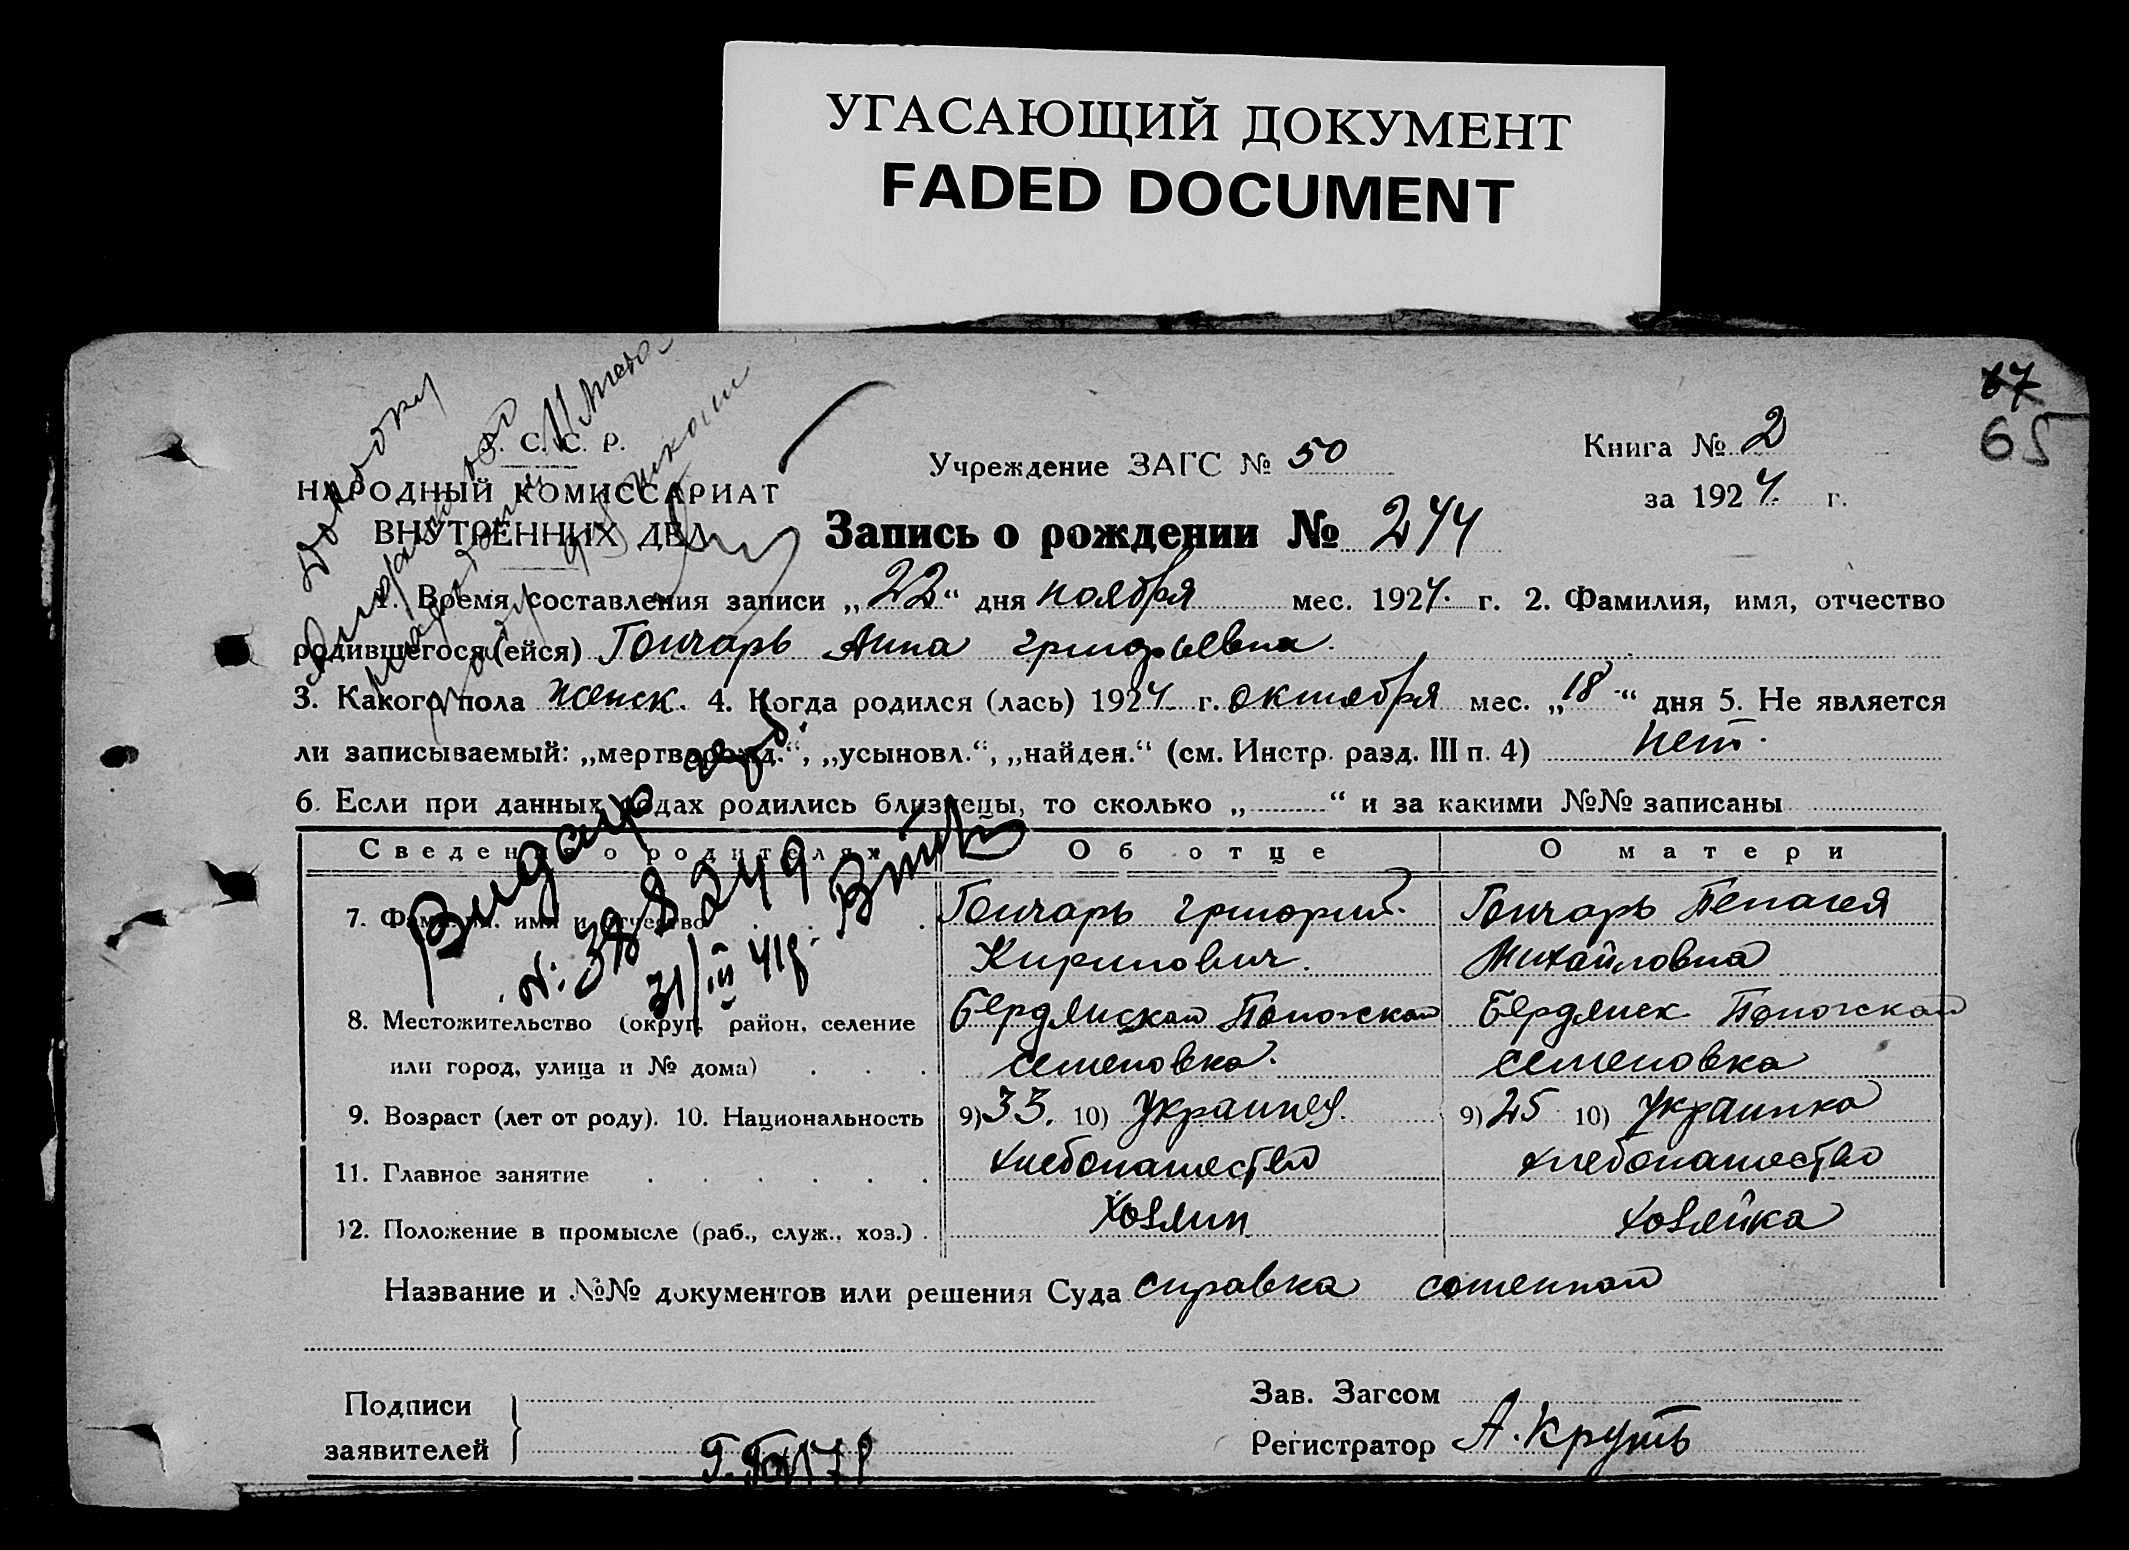 УГАСАЮЩИЙ ДОКУМЕНТ
FADED DOCUMENT
67
65
С. С. Р.
НАРОДНЫЙ КОМИССАРИАТ
ВНУТРЕННИХ ДЕЛ
Учреждение ЗАГС № 50
Книга № 2
за 1924. г.
Запись о рождении № 244
1. Время составления записи „22“ дня ноября мес. 1924. г. 2. Фамилия, имя, отчество
родившегося (ейся) Гончарь Анна Григорьевна.
3. Какого пола женск. 4. Когда родился (лась) 1924 г. октября мес. „18“ дня 5. Не является
ли записываемый: „мертворожд.“, „усыновл.“, „найден.“ (см. Инстр. разд. III п. 4) нет.
6. Если при данных родах родились близнецы, то сколько „ “ и за какими №№ записаны
Сведения о родителях Об отце О матери
7. Фамилия, имя и отчество Гончарь Григорий. Гончарь Пелагея
Кирилович. Михайловна
8. Местожительство (округ, район, селение Бердянской Пологской Бердянск Пологской
или город, улица и № дома) Семеновка. Семеновка
9. Возраст (лет от роду). 10. Национальность 9) 33. 10) Украинец. 9) 25 10) Украинка
11. Главное занятие хлебопашество хлебопашество
12. Положение в промысле (раб., служ., хоз.) Хозяин Хозяйка
Видаур
№: 398249
31/III 41р.
Название и №№ документов или решения Суда Справка
Подписи
заявителей
Зав. Загсом
Регистратор А. Круть